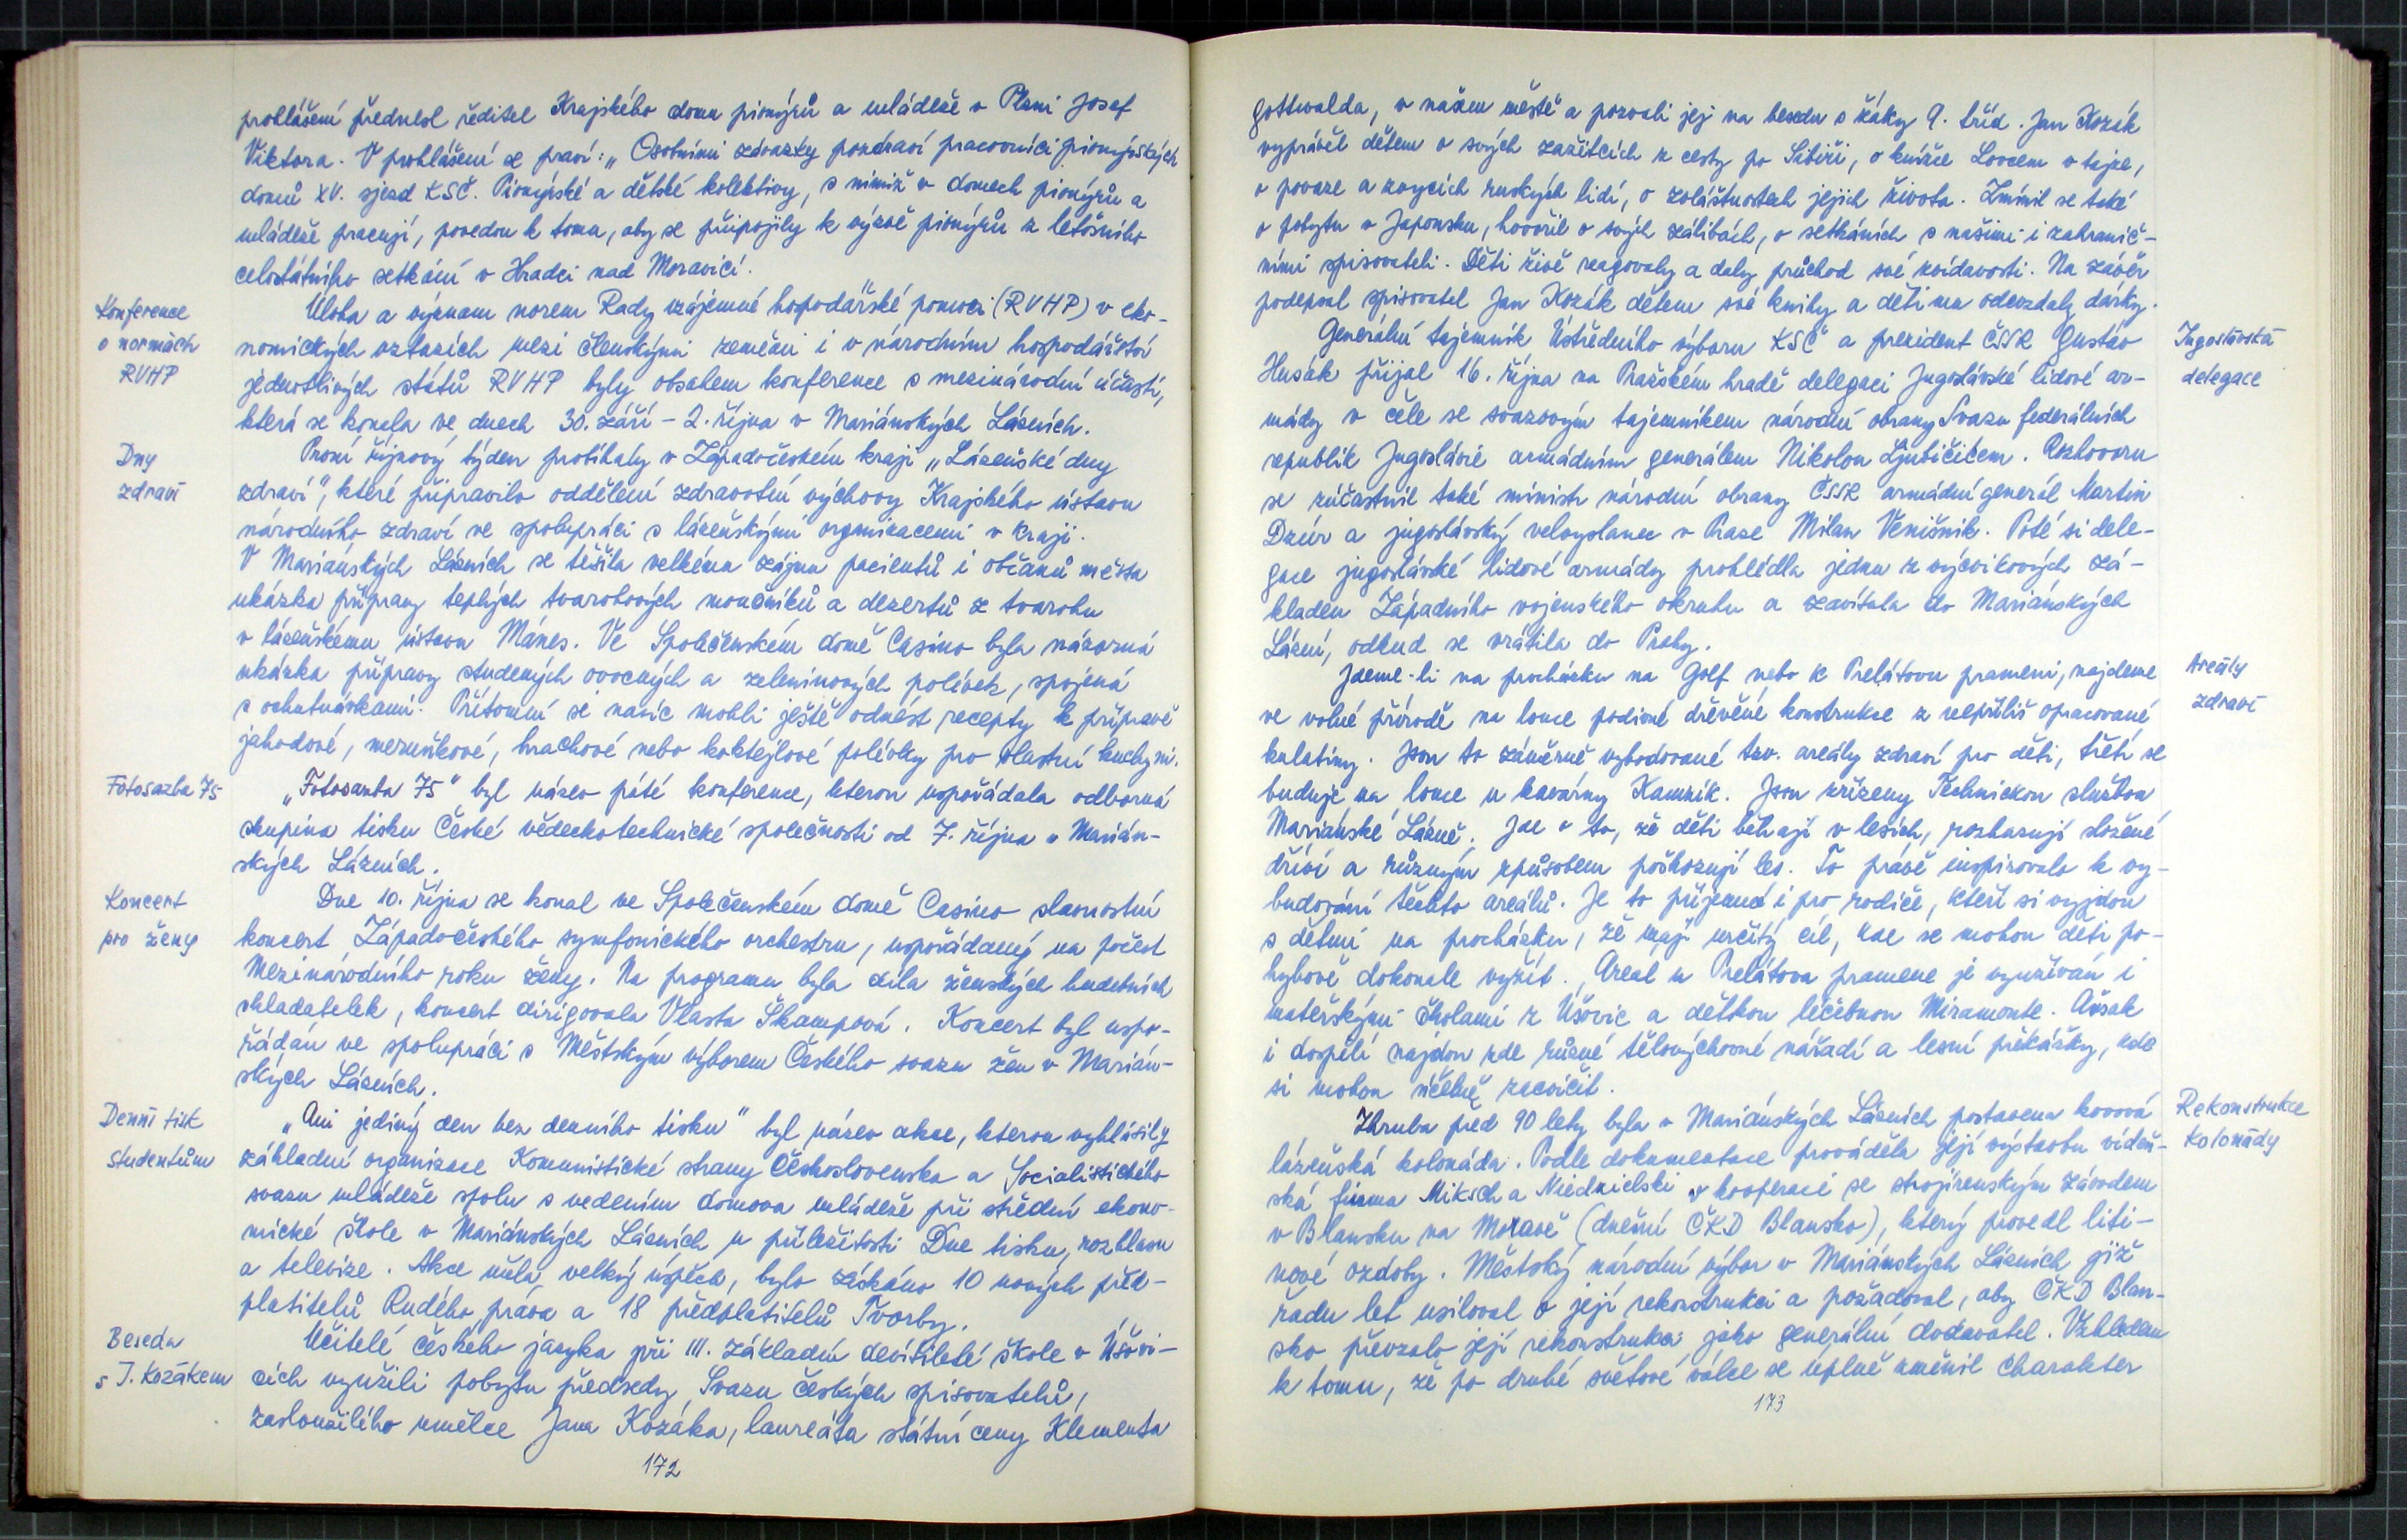 prohlášení přednesl ředitel Krajského domu pionýrů a mládeže v Plzni Josef
Viktora. V prohlášení se praví: „Osobními závazky pozdraví pracovníci pionýrských
domů XV. sjezd KSČ. Pionýrské a dětské kolektivy, s nimiž v domech pionýrů a
mládeže pracují, povedou k tomu, aby se připojily k výzvě pionýrů z letošního
celostátního setkání v Hradci nad Moravicí.
Konference
o normách
RVHP
Úloha a význam norem Rady vzájemné hospodářské pomoci (RVHP) v eko-
nomických vztazích mezi členskými zeměmi i v národním hospodářství
jednotlivých států RVHP byly obsahem konference s mezinárodní účastí,
která se konala ve dnech 30. září – 2. října v Mariánských Lázních.
Dny
zdraví
První říjnový týden probíhaly v Západočeském kraji „Lázeňské dny
zdraví", které připravilo oddělení zdravotní výchovy Krajského ústavu
národního zdraví ve spolupráci s lázeňskými organizacemi v kraji.
V Mariánských Lázních se těšila velkému zájmu pacientů i občanů města
ukázka přípravy teplých tvarohových moučníků a dezertů z tvarohu
v lázeňskému ústavu Mánes. Ve Společenském domě Casino byla názorná
ukázka přípravy studených ovocných a zeleninových polévek, spojená
s ochutnávkami. Přítomní si navíc mohli ještě odnést recepty k přípravě
jahodové, meruňkové, hrachové nebo koktejlové polévky pro vlastní kuchyni.
Fotosazba 75
„Fotosazba 75" byl název páté konference, kterou uspořádala odborná
skupina tisku České vědeckotechnické společnosti od 7. října v Marián-
ských Lázních.
Koncert
pro ženy
Dne 10. října se konal ve Společenském domě Casino slavnostní
koncert Západočeského symfonického orchestru, uspořádaný na počest
Mezinárodního roku ženy. Na programu byla díla ženských hudebních
skladatelek, koncert dirigovala Vlasta Škampová. Koncert byl uspo-
řádán ve spolupráci s Městským výborem Českého svazu žen v Marián-
ských Lázních.
Denní tisk
studentům
„Ani jediný den bez denního tisku" byl název akce, kterou vyhlásily
základní organizace Komunistické strany Československa a Socialistického
svazu mládeže spolu s vedením domova mládeže při střední ekono-
mické škole v Mariánských Lázních u příležitosti Dne tisku, rozhlasu
a televize. Akce měla velký úspěch, bylo získáno 10 nových před-
platitelů Rudého práva a 18 předplatitelů Tvorby.
Beseda
s J. Kozákem
Učitelé českého jazyka při III. základní devítileté škole v Úšovi-
cích využili pobytu předsedy Svazu českých spisovatelů,
zasloužilého umělce Jana Kozáka, laureáta státní ceny Klementa
172
Gottwalda, v našem městě a pozvali jej na besedu s žáky 9. tříd. Jan Kozák
vyprávěl dětem o svých zážitcích z cesty po Sibiři, o knížce Lovcem v tajze,
o povaze a zvycích ruských lidí, o zvláštnostech jejich života. Zmínil se také
o pobytu v Japonsku, hovořil o svých zálibách, o setkáních s našimi i zahranič-
ními spisovateli. Děti živě reagovaly a daly průchod své zvídavosti. Na závěr
podepsal spisovatel Jan Kozák dětem své knihy a děti mu odevzdaly dárky.
Jugoslávská
delegace
Generální tajemník Ústředního výboru KSČ a prezident ČSSR Gustáv
Husák přijal 16. října na Pražském hradě delegaci Jugoslávské lidové ar-
mády v čele se svazovým tajemníkem národní obrany Svazu federálních
republik Jugoslávie armádním generálem Nikolou Ljubičičem. Rozhovoru
se zúčastnil také ministr národní obrany ČSSR armádní generál Martin
Dzúr a jugoslávský velvyslanec v Praze Milan Venišnik. Poté si dele-
gace jugoslávské lidové armády prohlédla jednu z výcvikových zá-
kladen Západního vojenského okruhu a zavítala do Mariánských
Lázní, odkud se vrátila do Prahy.
Areály
zdraví
Jdeme-li na procházku na Golf nebo k Prelátovu prameni, najdeme
ve volné přírodě na louce podivné dřevěné konstrukce z nepříliš opracované
kulatiny. Jsou to záměrně vybudované tzv. areály zdraví pro děti, třetí se
buduje na louce u kavárny Kamzík. Jsou zřízeny Technickou službou
Mariánské Lázně. Jde o to, že děti běhají v lesích, rozhazují složené
dříví a různým způsobem poškozují les. To právě inspirovalo k vy-
budování těchto areálů. Je to příjemné i pro rodiče, kteří si vyjdou
s dětmi na procházku, že mají určitý cíl, kde se mohou děti po-
hybově dokonale vyžít. Areál u Prelátova pramene je využíván i
mateřskými školami z Úšovic a dětskou léčebnou Miramonte. Avšak
i dospělí najdou zde různé tělovýchovné nářadí a lesní překážky, kde
si mohou účelně zacvičit.
Rekonstrukce
Kolonády
Zhruba před 90 lety byla v Mariánských Lázních postavena kovová
lázeňská kolonáda. Podle dokumentace prováděla její výstavbu vídeň-
ská firma Miksch a Niedzielski v kooperaci se strojírenským závodem
v Blansku na Moravě (dnešní ČKD Blansko), který provedl liti-
nové ozdoby. Městský národní výbor v Mariánských Lázních již
řadu let usiloval o její rekonstrukci a požadoval, aby ČKD Blan-
sko převzalo její rekonstrukci jako generální dodavatel. Vzhledem
k tomu, že po druhé světové válce se úplně změnil charakter
173